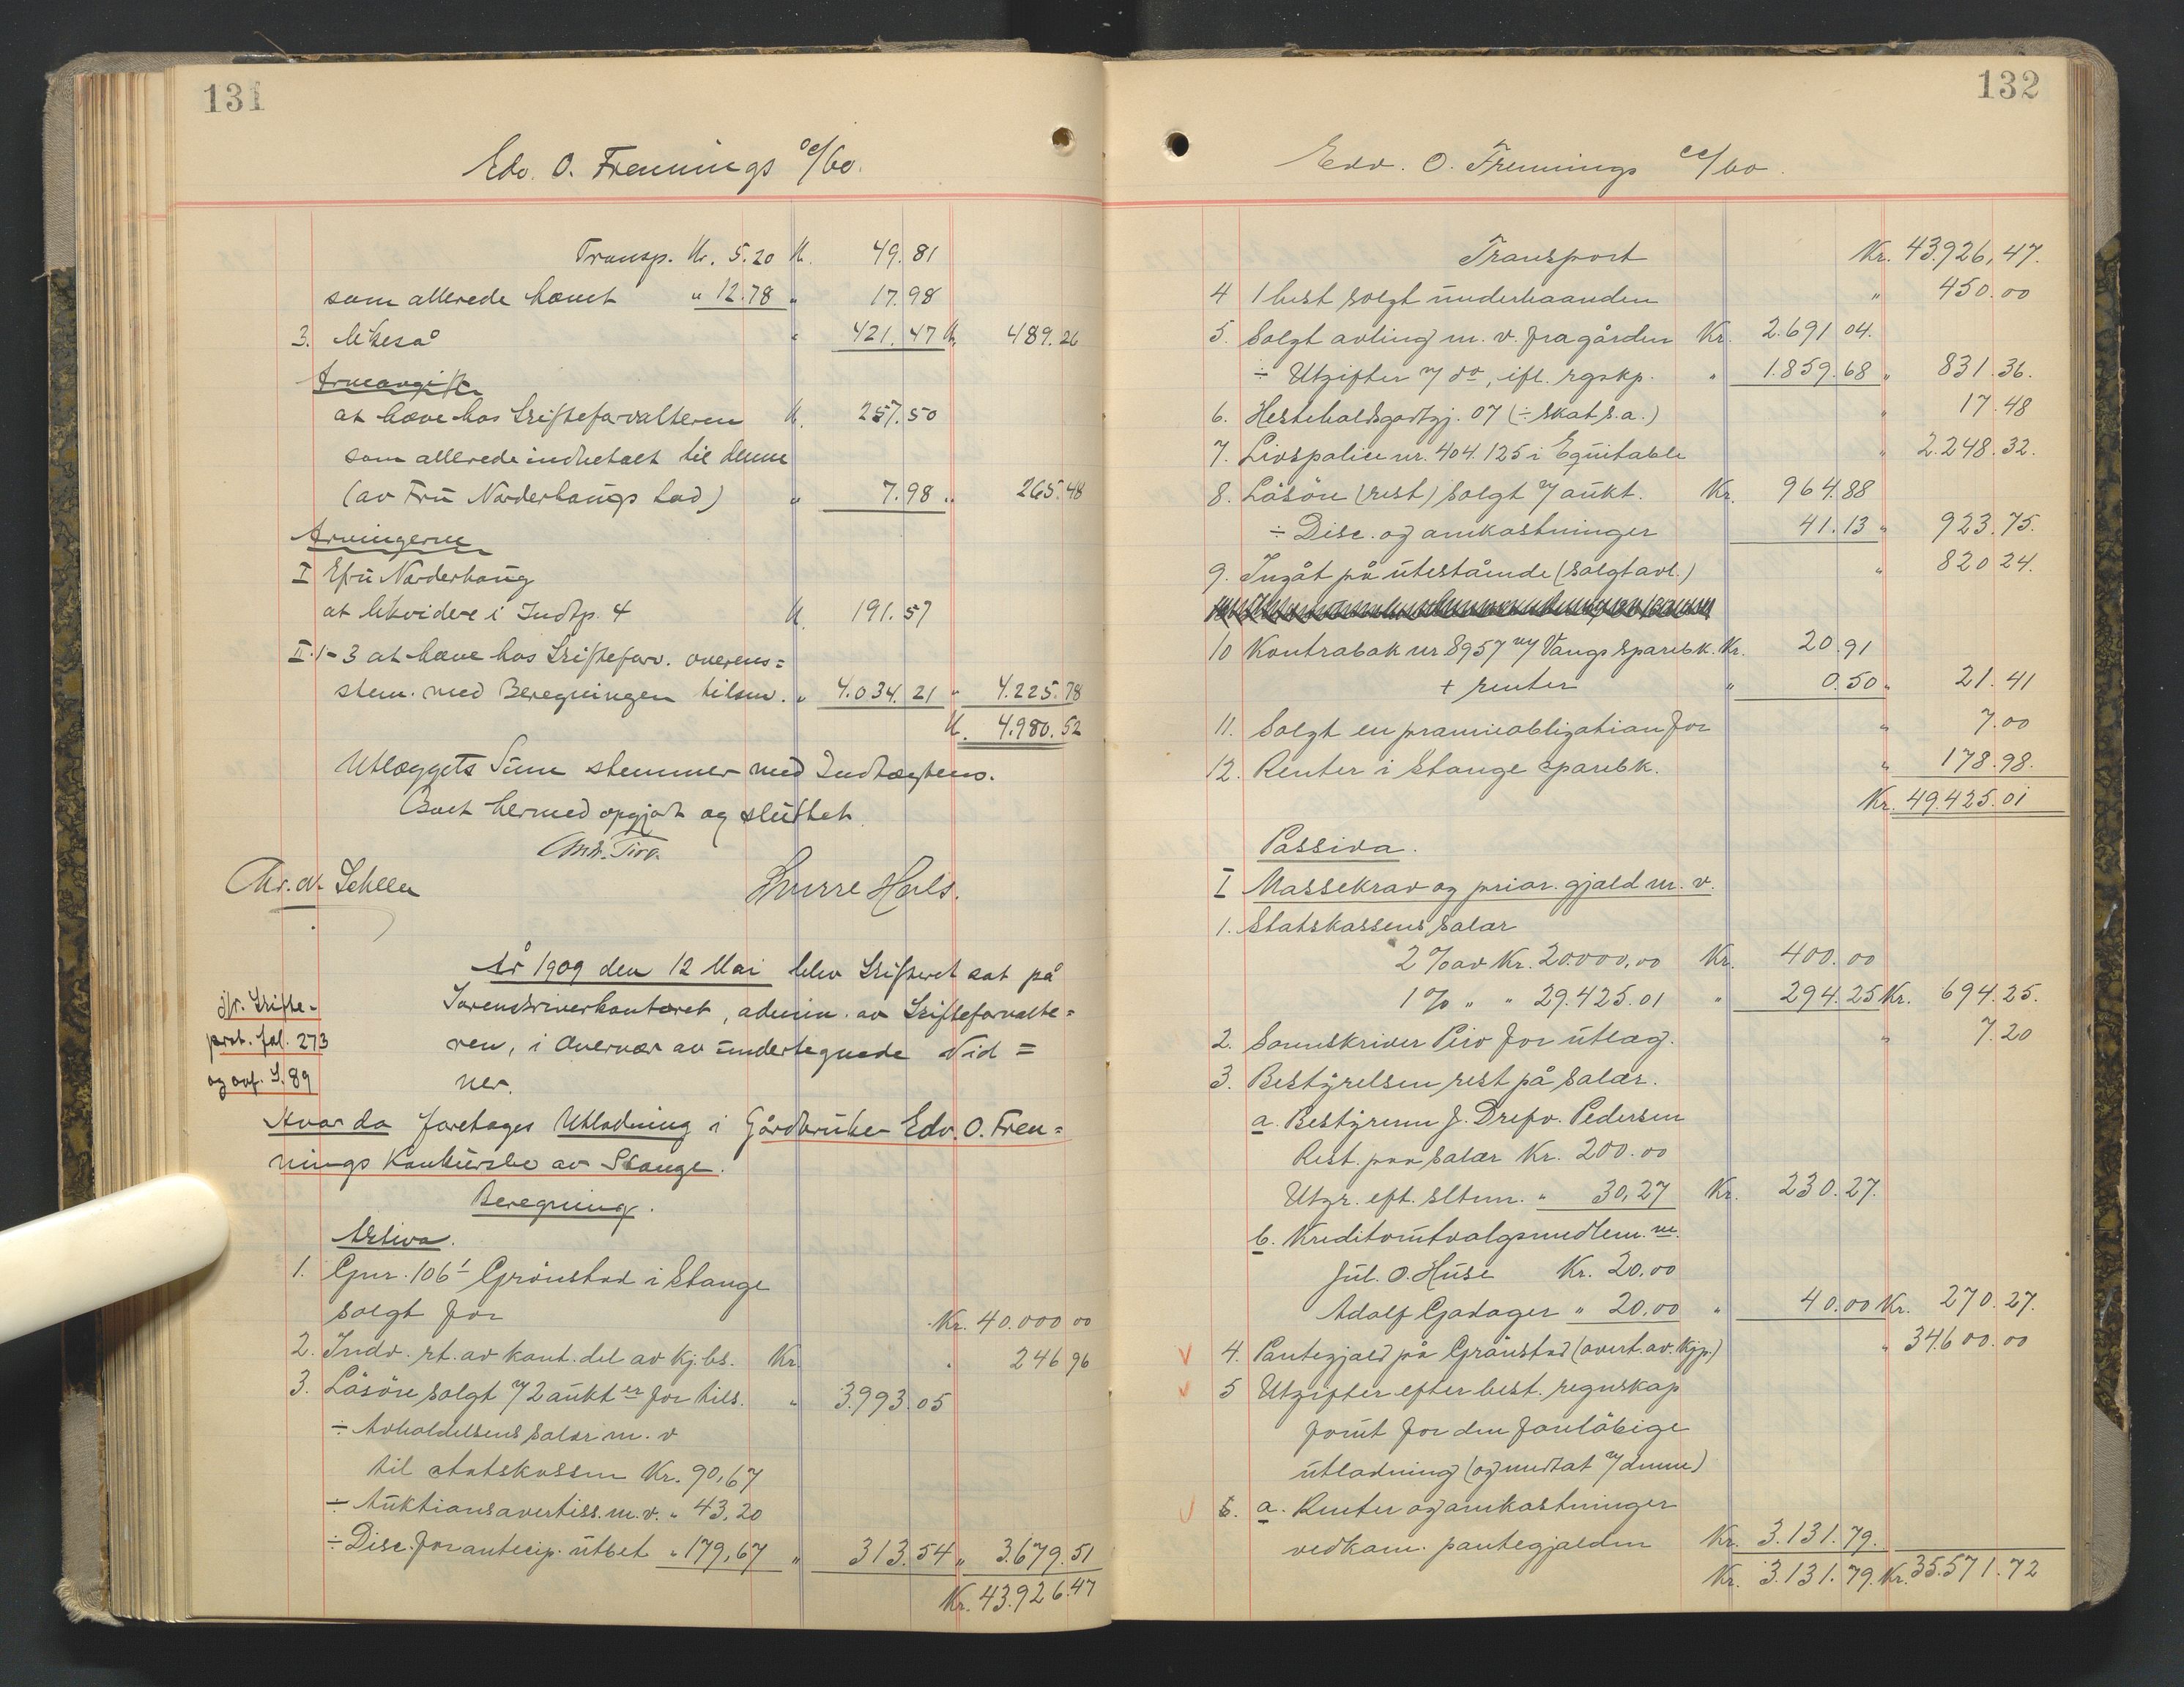 131
Edv. O. Frennings /bo.
Transp. Kr. 5.20 Kr. 49.81
som allerede hævet " 12.78 " 17.98
3. likeså " 421.47 Kr. 489.26
Arveavgift
at hæve hos Skifteforvalteren Kr. 257.50
som allerede indbetalt til denne
(av Fru Norderhaugs lod) " 7.98 " 265.48
Arvingerne
I Fru Norderhaug
at likvidere i Indtp. 4 Kr. 191.57
II. 1-3 at hæve hos Skifteforv. overens=
stem. med Beregningen tilsm. " 4.034.21 " 4.225.78
Kr. 4.980.52
Utlæggets Sum stemmer med Indtægtens.
Boet hermed opgjort og sluttet
Chr. Scheen
År 1909 den 12 Mai blev Skifteret sat på
Sorenskriverkontoret, admin. av Skifteforvalte=
ren, i Overvær av undertegnede Vid=
ner.
jfr. Skifte-
prot. fol. 273
og avf. S. 89
Hvor da foretoges Utlodning i Gårdbruker Edv. O. Fren=
nings Konkursbo av Stange.
Beregning.
Aktiva.
1. Gnr. 106¹ Grønstad i Stange
solgt for Kr. 40.000 00
2. Indv. rt. av kont. del av kj.bs. Kr. " 246 96
3. Løsøre solgt v/ 2 aukt er for tils. " 3.993.05
÷ Avholdelsens salær m. v
til statskassen Kr. 90,67
÷ Auktionsavertiss. m. v. " 43,20
÷ Disc. for antecip. utbet " 179,67 " 313.54 " 3.679.51
Kr. 43.926.47
132
Edv. O. Frennings /bo.
Transport Kr. 43.926,47.
4 1 hest solgt underhaanden " 450.00
5. Solgt avling m. v. fra gården Kr. 2.691 04.
÷ Utgifter v/ do, ifl. rgskp. " 1.859.68 " 831.36.
6. Hesteholdsgodtgj. 07 (÷ skat s.a.) " 17.48
7. Livspolice nr. 404.125 i Equitable " 2.248.32.
8. Løsøre (rest) solgt v/ aukt. Kr. 964.88
÷ Disc. og omkostninger 41.13 " 923.75.
9. Ingåt på utestående (solgt avl.) " 820 24.
10 Kontrabok nr 8957 v/ Vangs Sparebk. Kr. 20.91
+ renter " 0.50 " 21.41
11. Solgt en præmieobligation for " 7.00
12. Renter i Stange Sparebk. " 178.98.
Kr. 49.425.01
Passiva.
I Massekrav og prior. gjæld m. v.
1. Statskassens salær
2 % av Kr. 20.000,00 Kr. 400.00
1 % " " 29.425.01 " 294.25 Kr. 694.25.
2. Sorenskriver Piro for utlæg. " 7.20
3. Bestyrelsen rest på salær.
a. Bestyreren J. Drefv. Pedersen
Rest. paa salær Kr. 200.00
Utgr. eft. " 30,27 Kr. 230.27.
b. Kreditorutvalgsmedlem. ne.
Jul. O. Huse Kr. 20.00
Adolf Gadager " 20.00 " 40.00 Kr. 270.27.
4. Pantegjæld på Grønstad (overt. av. kjp.) " 34.600.00
5 Utgifter efter best. regnskap
forut for den foreløbige
utlodning (og medtat v/ denne)
6. a. Renter og omkostninger
vedkom. pantegjælden Kr. 3.131.79.
Kr. 3.131.79. Kr. 35.571.72